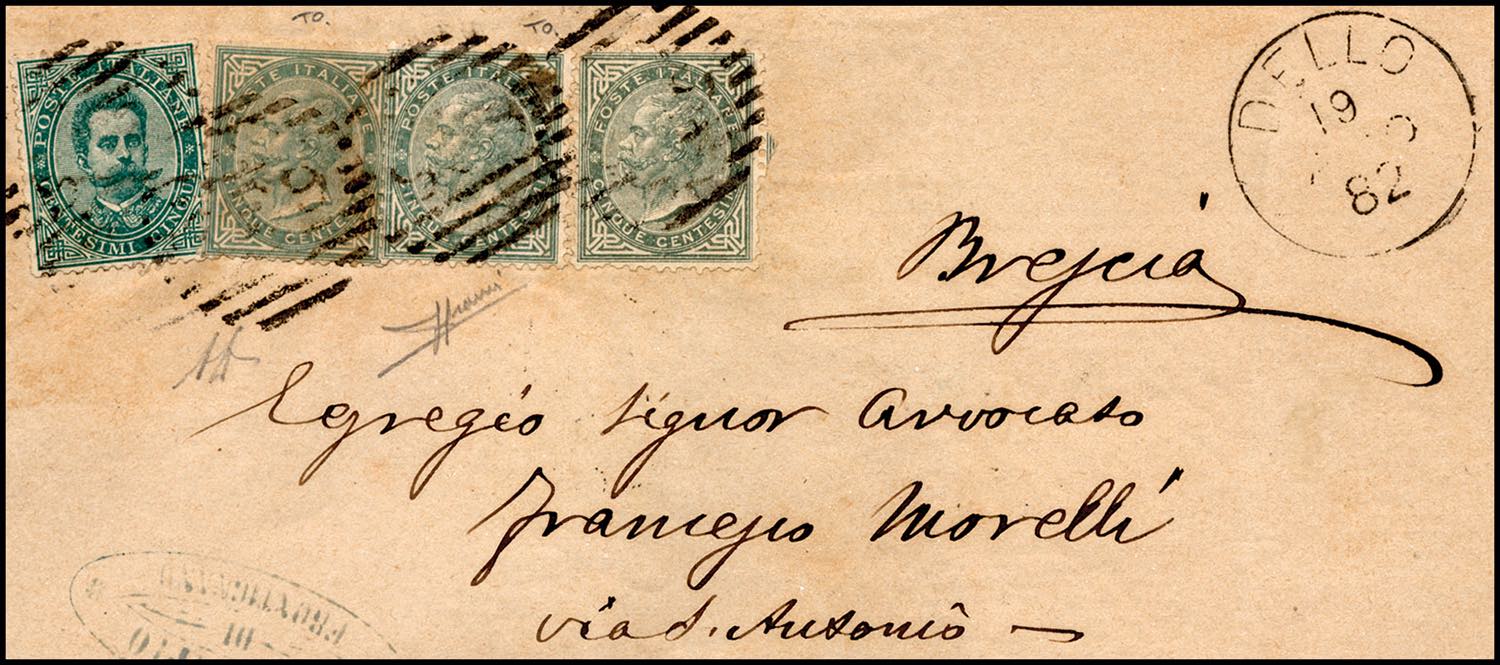 TO.
TO.
POSTE ITALIANE
CENTESIMI CINQUE
POSTE ITALIANE
CINQUE CENTESIMI
POSTE ITALIANE
CINQUE CENTESIMI
POSTE ITALIANE
CINQUE CENTESIMI
DELLO
19
82
Brescia
Egregio Signor Avvocato
Francesco Morelli
via S. Antonio
DI